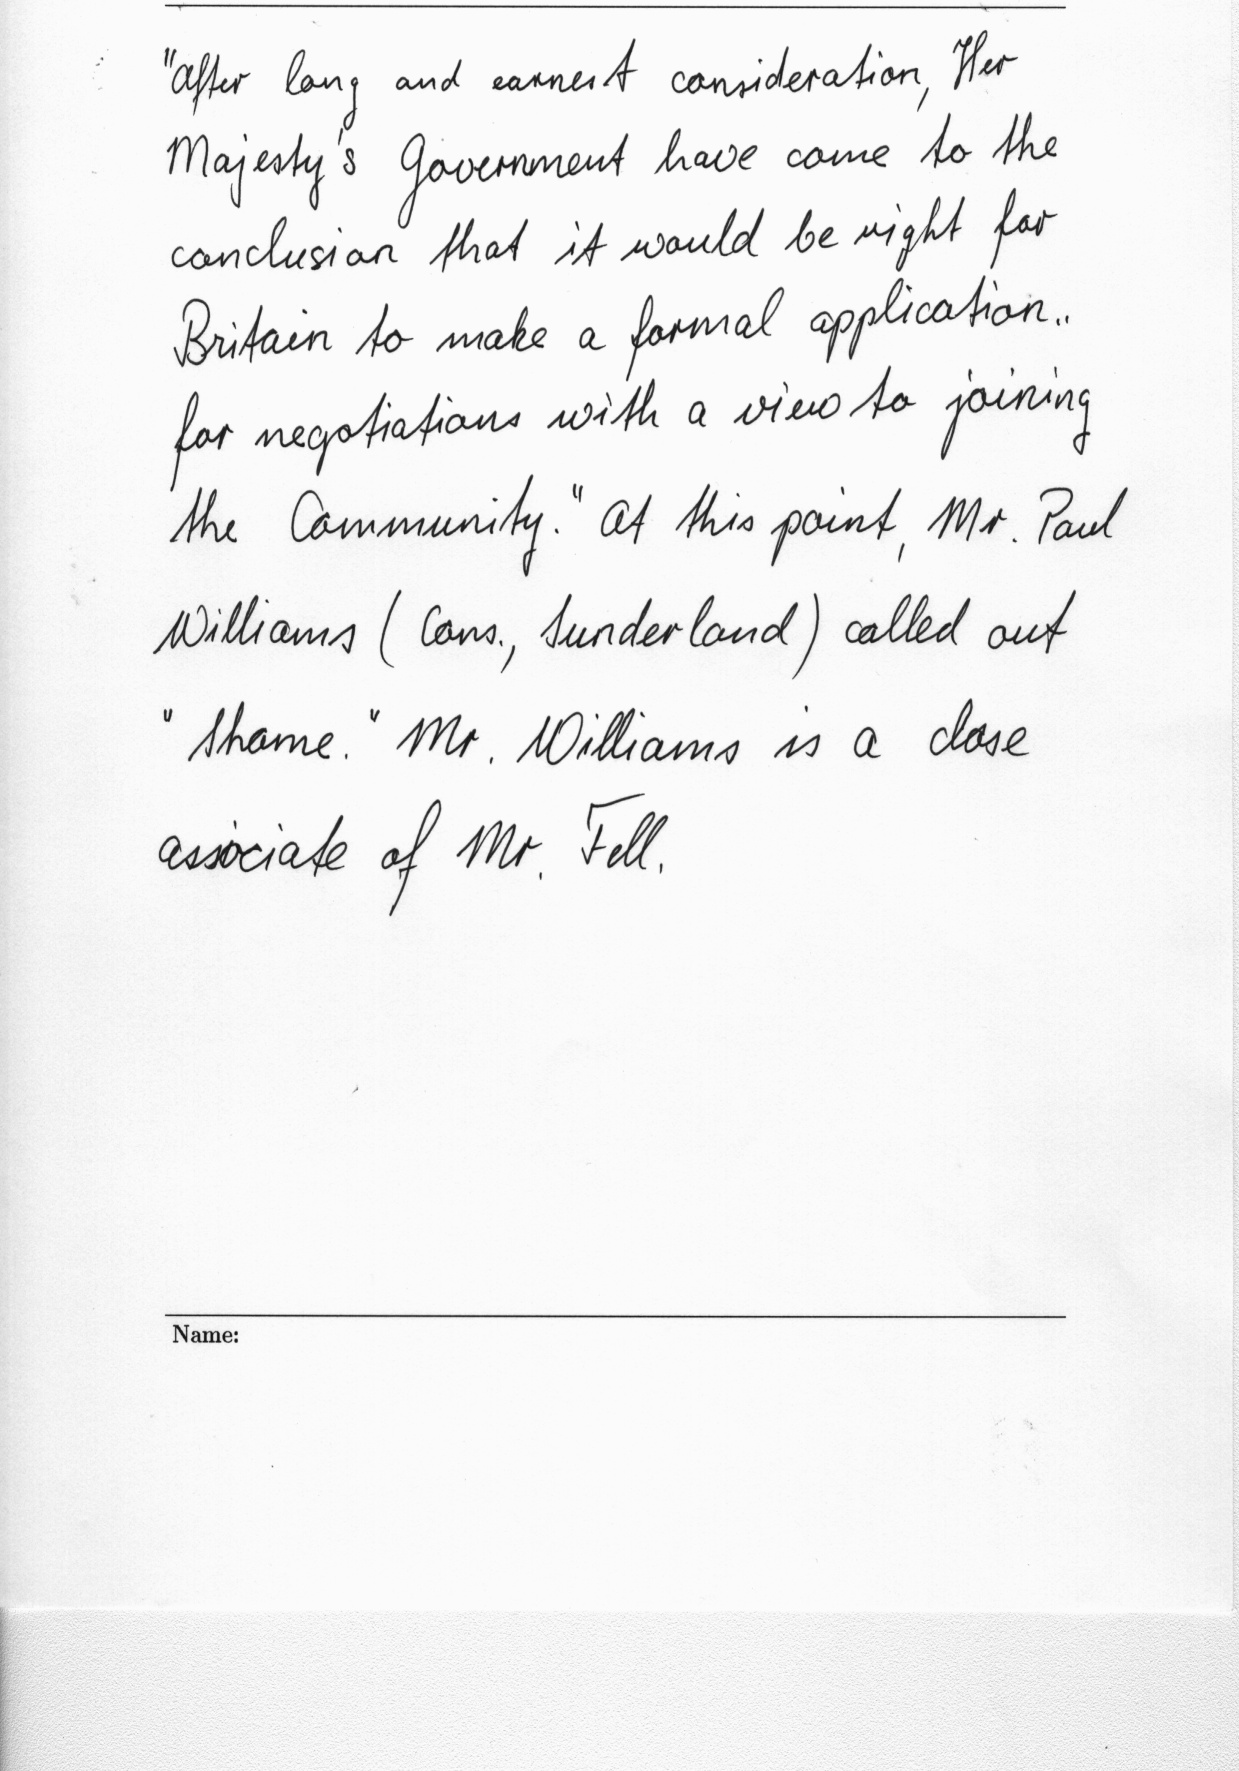 "After long and earnest consideration, Her
Majesty's Government have come to the
conclusion that it would be right for
Britain to make a formal application..
for negotiations with a view to joining
the Community." At this point, Mr. Paul
Williams (Cons., Sunderland) called out
"Shame." Mr. Williams is a close
associate of Mr. Fell.
Name: